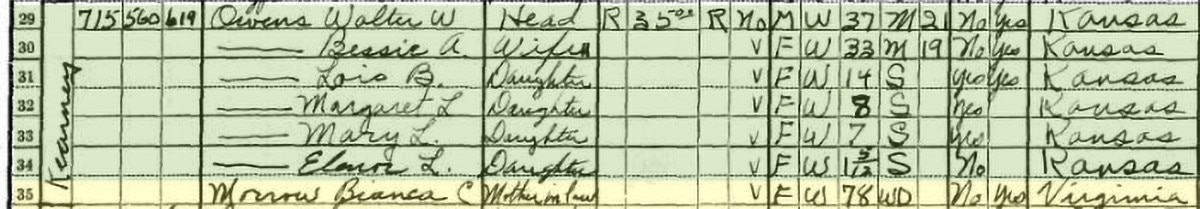 29 715 560 619 Owens Walter W Head R 35.00 R No M W 37 M 21 No Yes Kansas
30 —— Bessie A. Wife V F W 33 M 19 No Yes Kansas
31 —— Lois B. Daughter V F W 14 S yes Yes Kansas
32 —— Margaret L Daughter V F W 8 S Yes Kansas
33 —— Mary L. Daughter V F W 7 S yes Kansas
34 —— Elenor L. Daughter V F W 1 5/12 S No Kansas
35 Morrow Bianca C Mother in law V F W 78 WD No Yes Virginia
Kearney